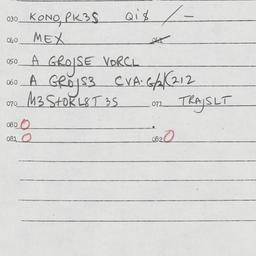 030 KONO, PK3S QI8 / –
040 MEX
050 A GROJSE VORCL
060 A GROJS3 CVA.G/2K212
070 M3 StOKL8T 3S 071 TRAJSLT
080 0
081 0 082 0